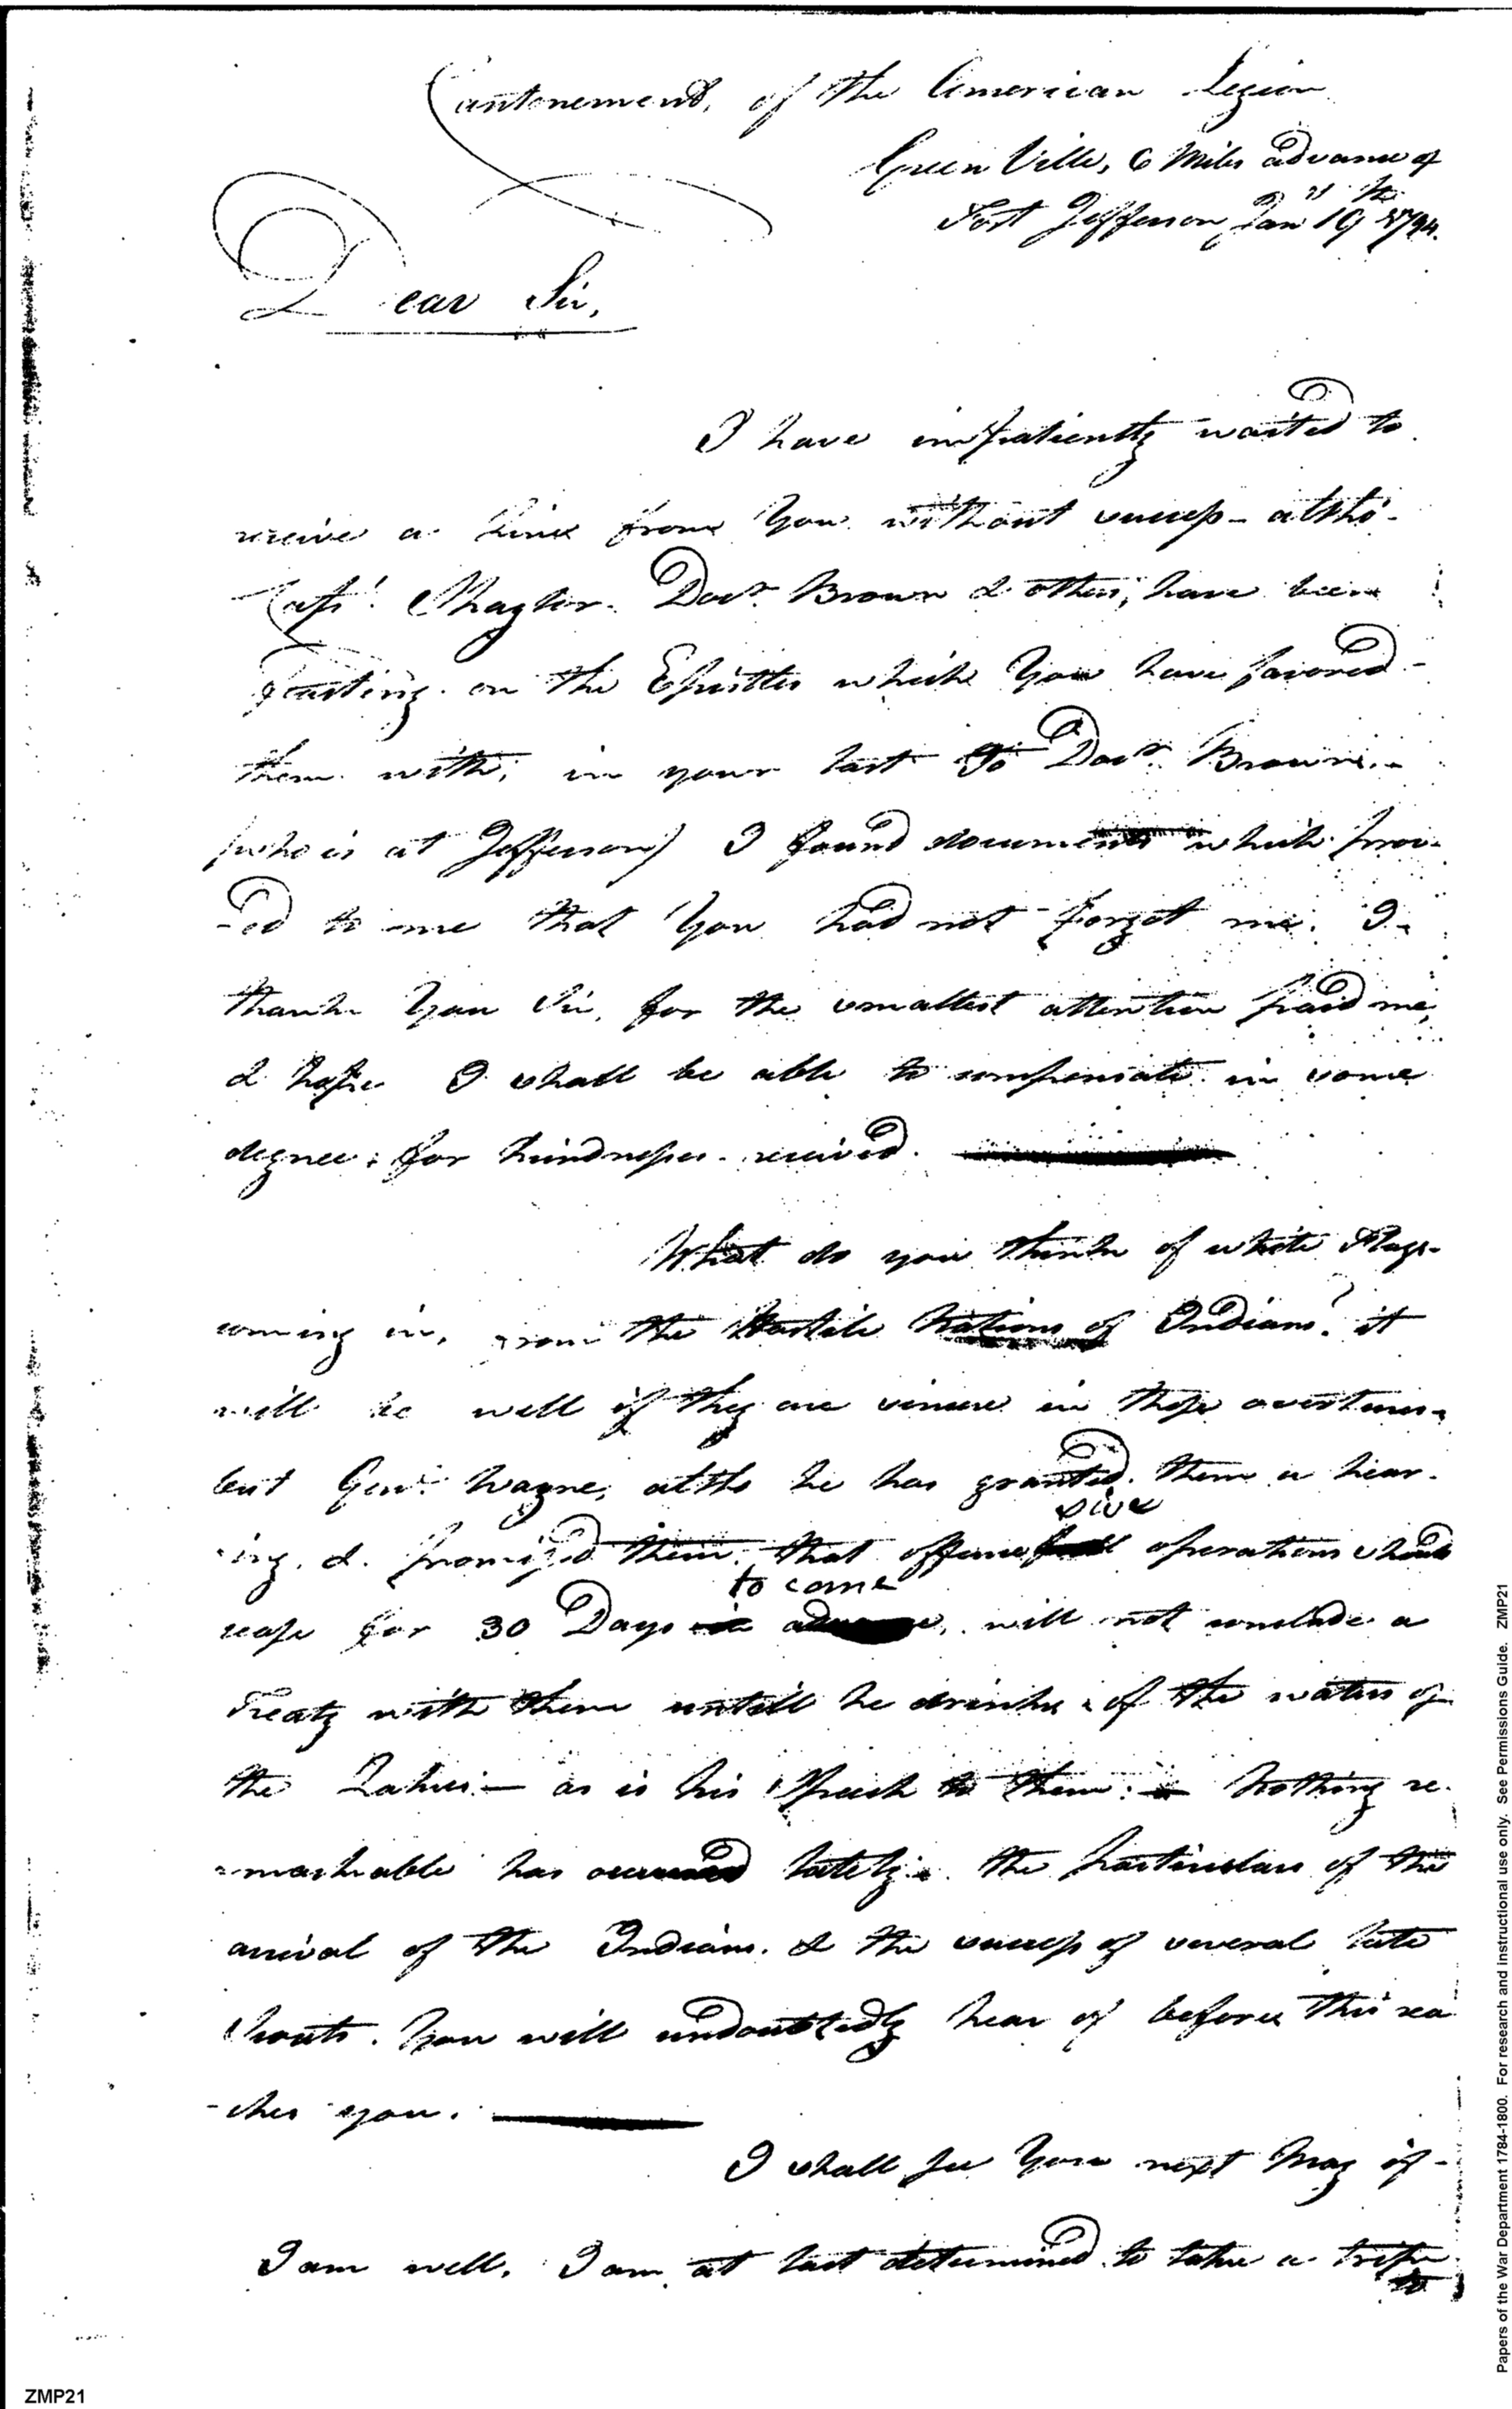 Cantonement, of the American Legion
Green Ville, 6 Miles advance of
Fort Jefferson Jany 19th 1794.
Dear Sir,
I have impatiently waited to
receive a line from You without success - altho'
Capt. Doctr. Brown & others, have been
feasting on the Epistles which You have favored
them with, in your last to Doctr. Brown.
(who is at Jefferson) I found documents which prov-
-ed to me that You had not forgot me. I
thank You Sir, for the smallest attention paid me,
& hope I shall be able to compensate in some
degree, for kindnesses received.
What do you think of white Flags
coming in, from the Hostile Nations of Indians? it
will be well if they are sincere in those overtures.
but Genl. Wayne, altho he has granted them a hear-
-ing, & promized them, that offensive operations should
cease for 30 Days to come, will not conclude a
Treaty with them untill he drinks of the waters of
the Lakes: — as is his Speech to them: - Nothing re-
-markable has occurred lately. the particulars of the
arrival of the Indians. & the success of several late
Scouts. You will undoubtedly hear of before this rea
-ches you.
I shall see You next May if
I am well. I am, at last determined to take a tripe
to
Papers of the War Department 1784-1800. For research and instructional use only. See Permissions Guide. ZMP21
ZMP21